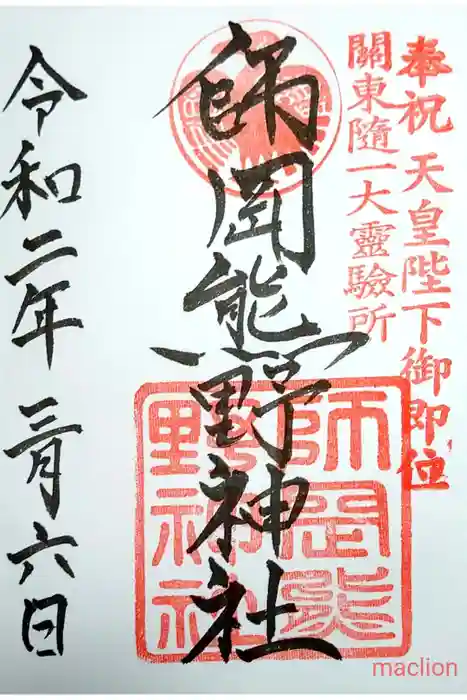 奉祝 天皇陛下御即位
關東隨一大靈驗所
師岡熊野神社
師岡熊
野神社
令和二年三月六日
maclion